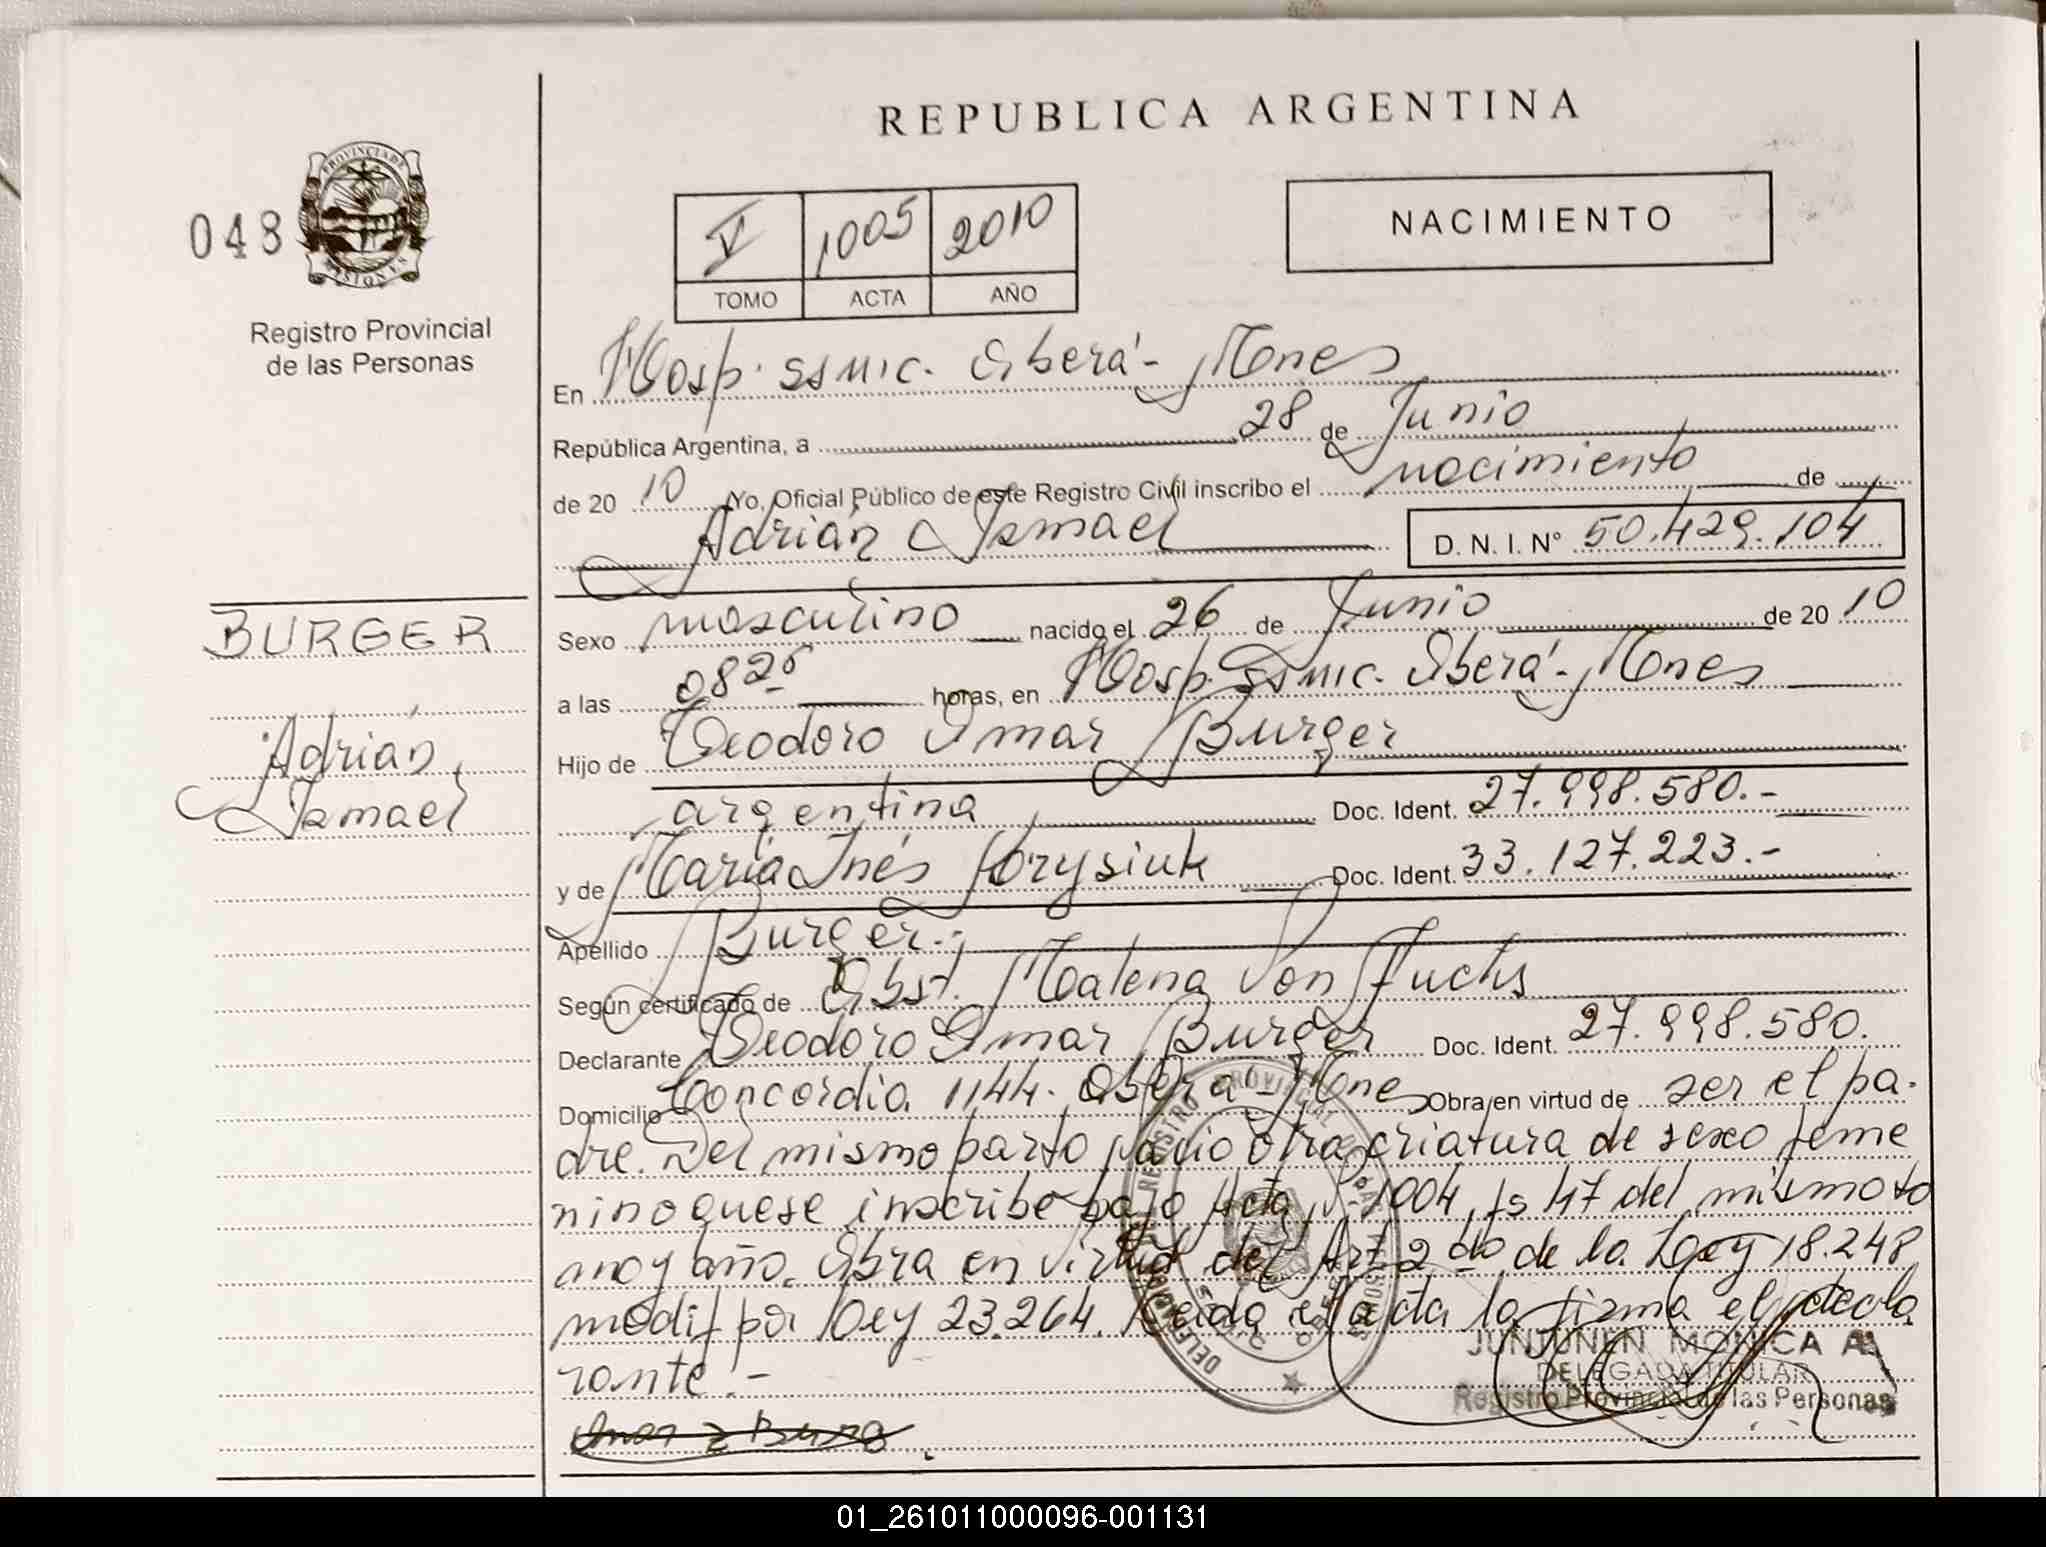 REPUBLICA ARGENTINA
048
PROVINCIA DE
MISIONES
Registro Provincial
de las Personas
V 1005 2010
TOMO ACTA AÑO
NACIMIENTO
En Hosp. SSMIC. Oberá - Mones
República Argentina, a 28 de Junio
de 20 10 Yo, Oficial Público de este Registro Civil inscribo el nacimiento de
Adrián Ismael D. N. I. N° 50.429.104
BURGER
Adrián
Ismael
Sexo masculino nacido el 26 de Junio de 20 10
a las 0825 horas, en Hosp. SSMIC. Oberá - Mones
Hijo de Teodoro Omar Burger
argentina Doc. Ident. 27.998.580.-
y de María Inés Doc. Ident. 33.127.223.-
Apellido Burger.-
Según certificado de Obst. Malena Von Fuchs
Declarante Teodoro Omar Burger Doc. Ident. 27.998.580.
Domicilio Concordia 1144. Oberá - Mones Obra en virtud de ser el pa-
dre. Del mismo parto nació otra criatura de sexo feme
nino que se inscribe bajo Acta N° 1004, fs 47 del mismo to
mo y año. Obra en virtud del Art. 2do de la Ley 18.248
modif por Ley 23.264. Leida el acta la firma el decla
rante.-
JUNJUNEN MONICA A.
DELEGADA TITULAR
Registro Provincial de las Personas
REGISTRO PROVINCIAL DE LAS PERSONAS
01_261011000096-001131